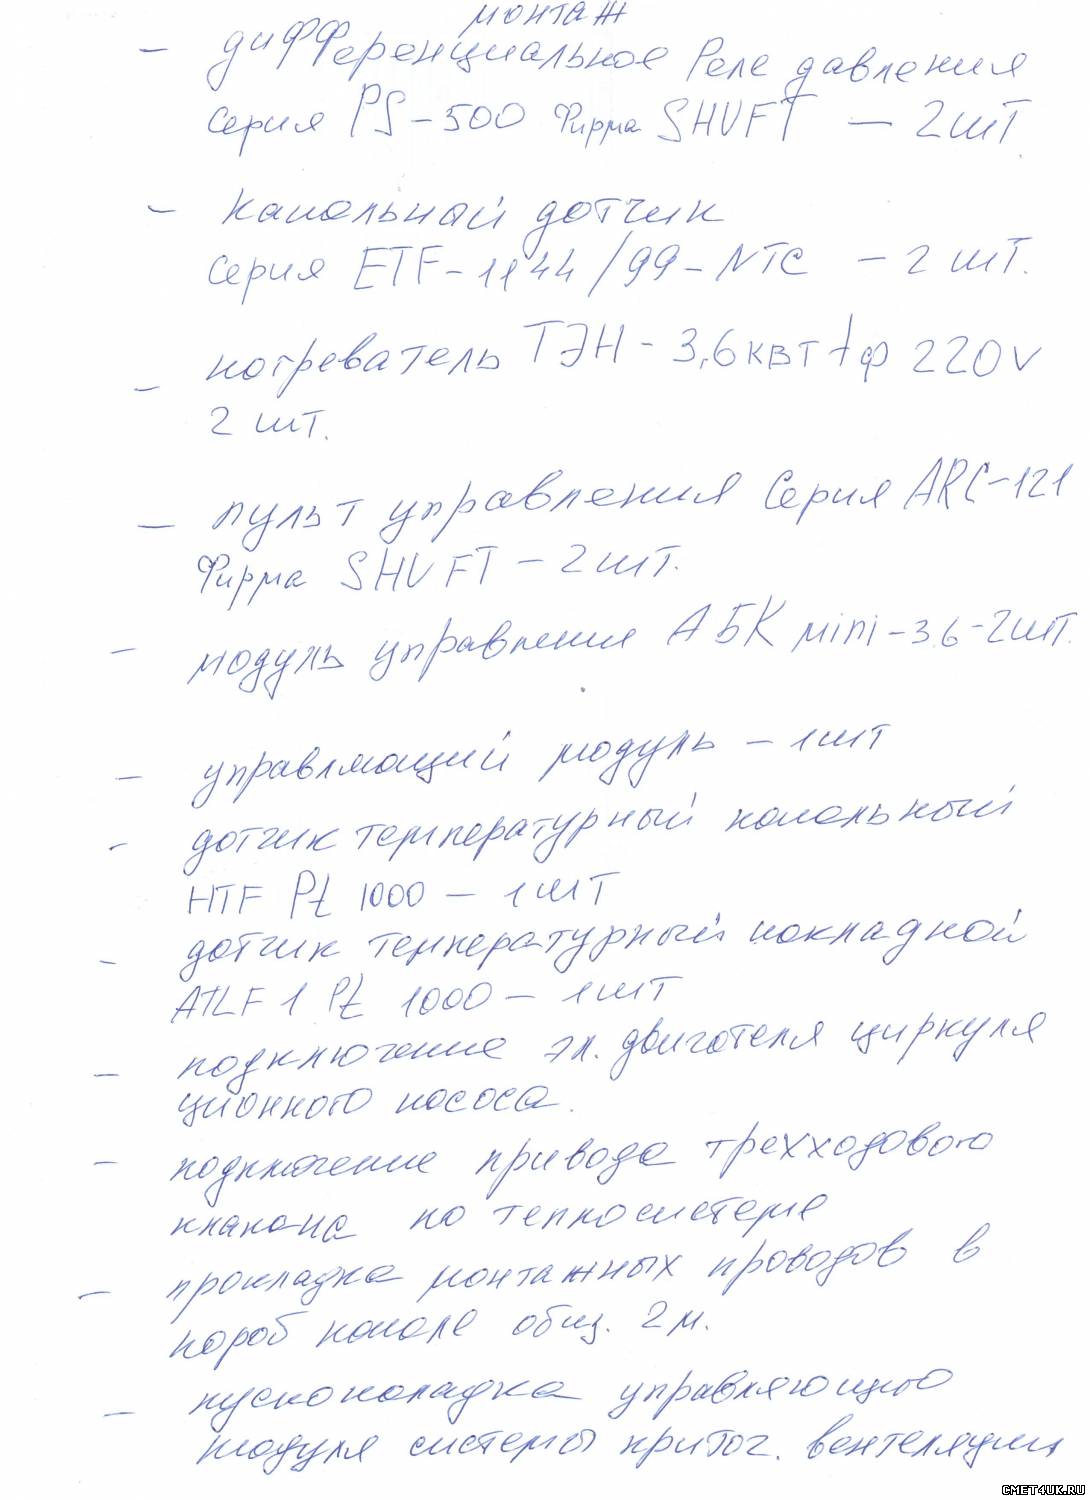 монтаж
— дифференциальное реле давления
серия PS-500 фирма SHUFT — 2 шт
— канальный датчик
серия ETF-1144/99-NTC — 2 шт.
— нагреватель ТЭН - 3,6 квт 1ф 220v
2 шт.
— пульт управления серия ARC-121
Фирма SHUFT — 2 шт.
— модуль управления АБК мini-3.6-2шт.
— управляющий модуль — 1шт
- датчик температурный канальный
HTF Pt 1000 — 1 шт
- датчик температурный накладной
ATLF 1 Pt 1000 — 1 шт
— подключение эл. двигателя циркуля
ционного насоса.
— подключение привода трехходового
клапана по теплосистеме
— прокладка монтажных проводов в
короб канале общ. 2 м.
— пусконаладка управляющего
модуля системы приточ. вентеляции
CMET4UK.RU